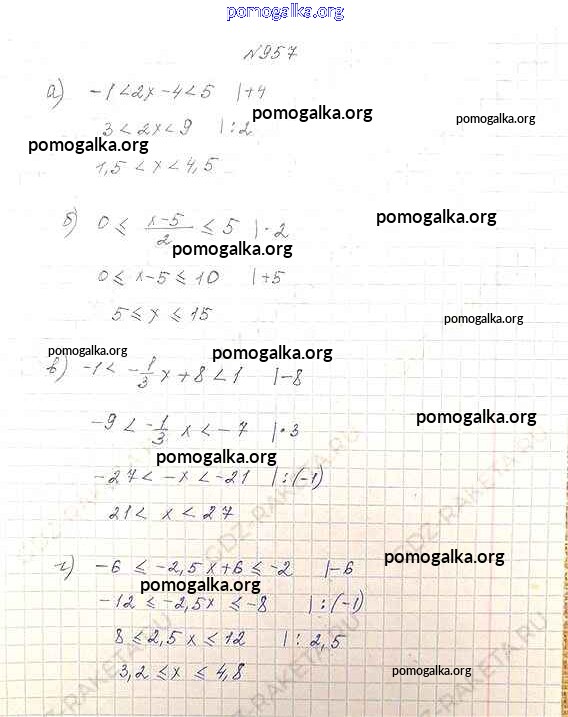 pomogalka.org
№957
а) -1 < 2x - 4 < 5 |+4
pomogalka.org
pomogalka.org
3 < 2x < 9 |:2
pomogalka.org
1,5 < x < 4,5
б) 0 ≤ x-5/2 ≤ 5 |·2
pomogalka.org
pomogalka.org
0 ≤ x-5 ≤ 10 |+5
5 ≤ x ≤ 15
pomogalka.org
pomogalka.org
pomogalka.org
в) -1 < -1/3 x + 8 < 1 |-8
pomogalka.org
-9 < -1/3 x < -7 |·3
pomogalka.org
-27 < -x < -21 |:(-1)
21 < x < 27
GDZ-RAKETA.RU
pomogalka.org
г) -6 ≤ -2,5x + 6 ≤ -2 |-6
pomogalka.org
-12 ≤ -2,5x ≤ -8 |:(-1)
8 ≤ 2,5x ≤ 12 |: 2,5
3,2 ≤ x ≤ 4,8
pomogalka.org
GDZ-RAKETA.RU
GDZ-RAKETA.RU